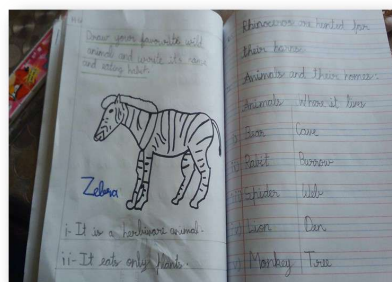 H.W
Draw your favourite wild
animal and write it's name
and eating habit.
Zebra
i- It is a herbivore animal.
ii- It eats only plants.
Rhinoceros are hunted for
their horns.
Animals and their homes.
Animals Where it live
Bear Cave
Rabit Burrow
Spider Web
Lion Den
Monkey Tree